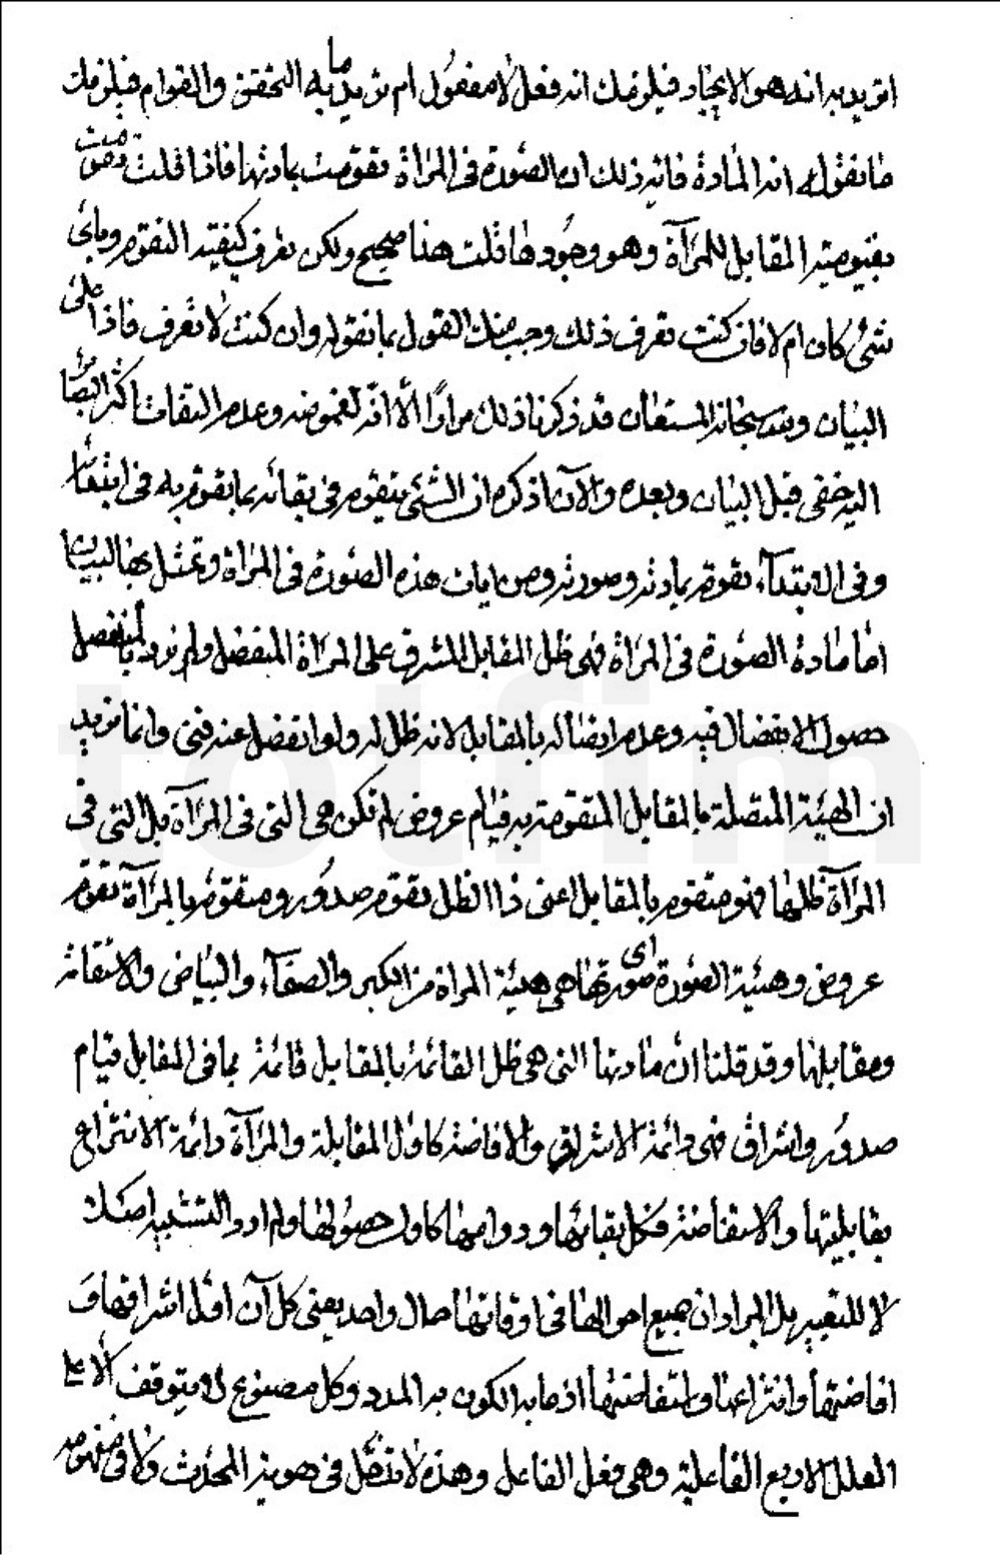 اتريد به انه هو الايجاد فيلزمك انه فعل لا مفعول ام تريد ما به التحقق والقوام فيلزمك
ما نقول انه المادة فانه ذلك ان الصورة فى المرآة تقومت بمادتها فاذا قلت تقومت
بقيومية المقابل للمرآة وهو وجودها قلت هذا صحيح ولكن تعرف كيفية التقوم وباى
شىء كان ام لا فان كنت تعرف ذلك وجب منك القول بما نقوله وان كنت لا تعرف فاذا على
البيان والله سبحانه المستعان قد ذكرنا ذلك مرارًا الا انه لغموضه وعدم التفات اكثر
اليه خفى قبل البيان وبعده والآن اذكره ان الشىء يتقوم فى بقائه بما يقوم به فى ابتدائه
وفى الابتدآء تقوم بمادته وصورته ومن ايات هذه الصورة فى المرآة وتمثل بها لبيان
اما مادة الصورة فى المرآة فهى ظل المقابل المشرق على المرآة المنفصل ولم نرد بالمنفصل
حصول الانفصال فيه وعدم اتصاله بالمقابل لانه ظل له ولو انفصل عنه فنى وانما نريد
ان الهيئة المتصلة بالمقابل المتقومة به قيام عروض لم تكن هى التى فى المرآة بل التى فى
المرآة ظلها فهو متقوم بالمقابل اعنى ذا الظل تقوم صدور ومتقوم بالمرآة تقوم
عروض وهيئة الصورة اى صورتها هى هيئة المرآة من الكبر والصفآء والبياض والاستقامة
ومقابلها وقد قلنا ان مادتها التى هى ظل القائمة بالمقابل قائمة بما فى المقابل قيام
صدور واشراق فهى دائمة الاشراق والافاضة كاول المقابلة والمرآة دائمة الانتزاع
بقابليتها والاستفاضة فكل بقائها ودوامها كاول حصولها ولم ارد التشبيه اصلك
لا للتعبير بل المراد ان جميع احوالها فى اوقاتها حال واحد يعنى كل آن اول اشراقها و
افاضتها وانتزاعها واستفاضتها اذ ما به الكون به المدد وكل مصنوع لا يتوقف الا على
العلل الاربع الفاعلية وهى فعل الفاعل وهذه لا تدخل فى هوية المحدث ولا فى مفهومه
totfim